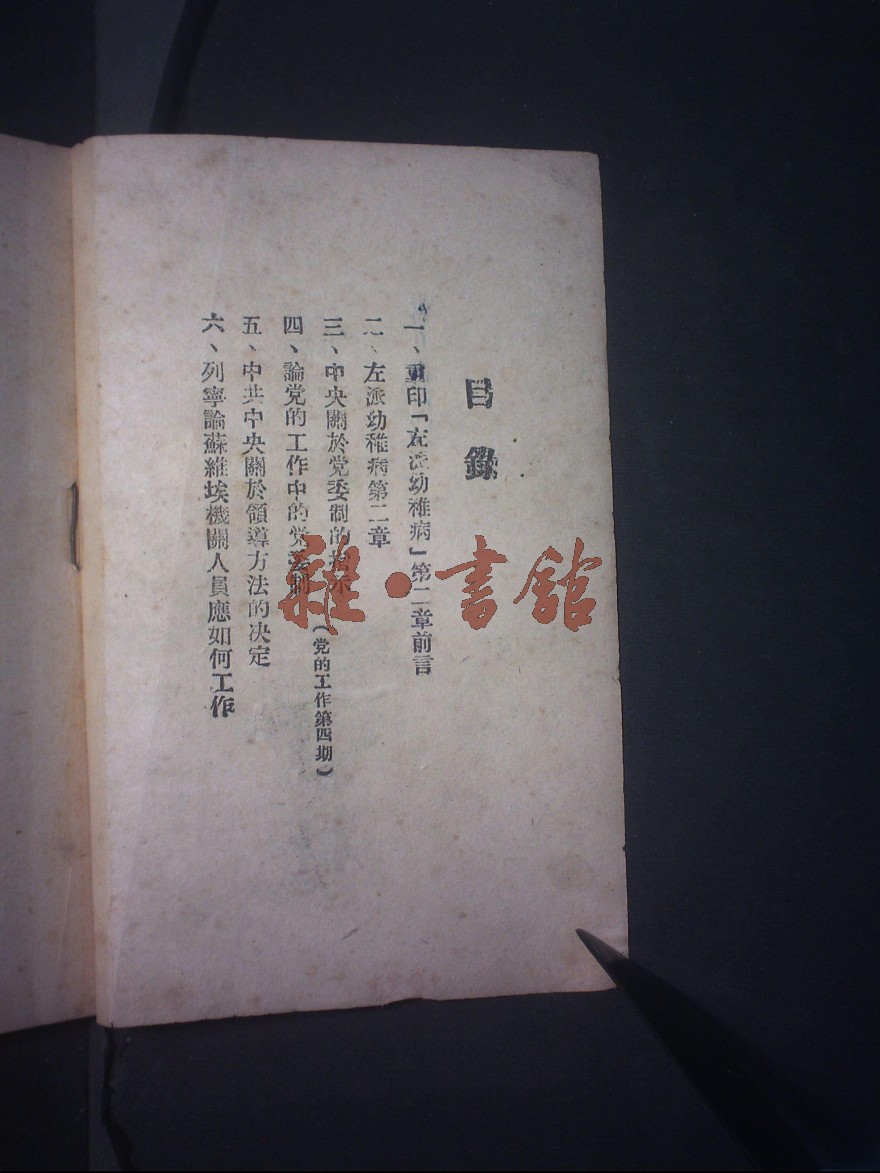 目錄
一、重印「左派幼稚病」第二章前言
二、左派幼稚病第二章
三、中央關於党委制的指示
(党的工作第四期)
四、論党的工作中的党委制
五、中共中央關於領導方法的决定
六、列寧論蘇維埃機關人員應如何工作
雜·書館